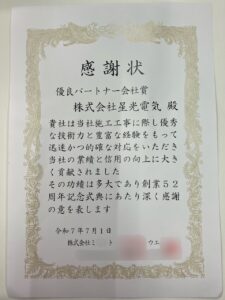 感謝状
優良パートナー会社賞
株式会社星光電気 殿
貴社は当社施工工事に際し優秀
な技術力と豊富な経験をもって
迅速かつ的確な対応をいただき
当社の業績と信用の向上に大き
く貢献されました
その功績は多大であり創業52
周年記念式典にあたり深く感謝
の意を表します
令和7年7月1日
株式会社ミ ト ウエ